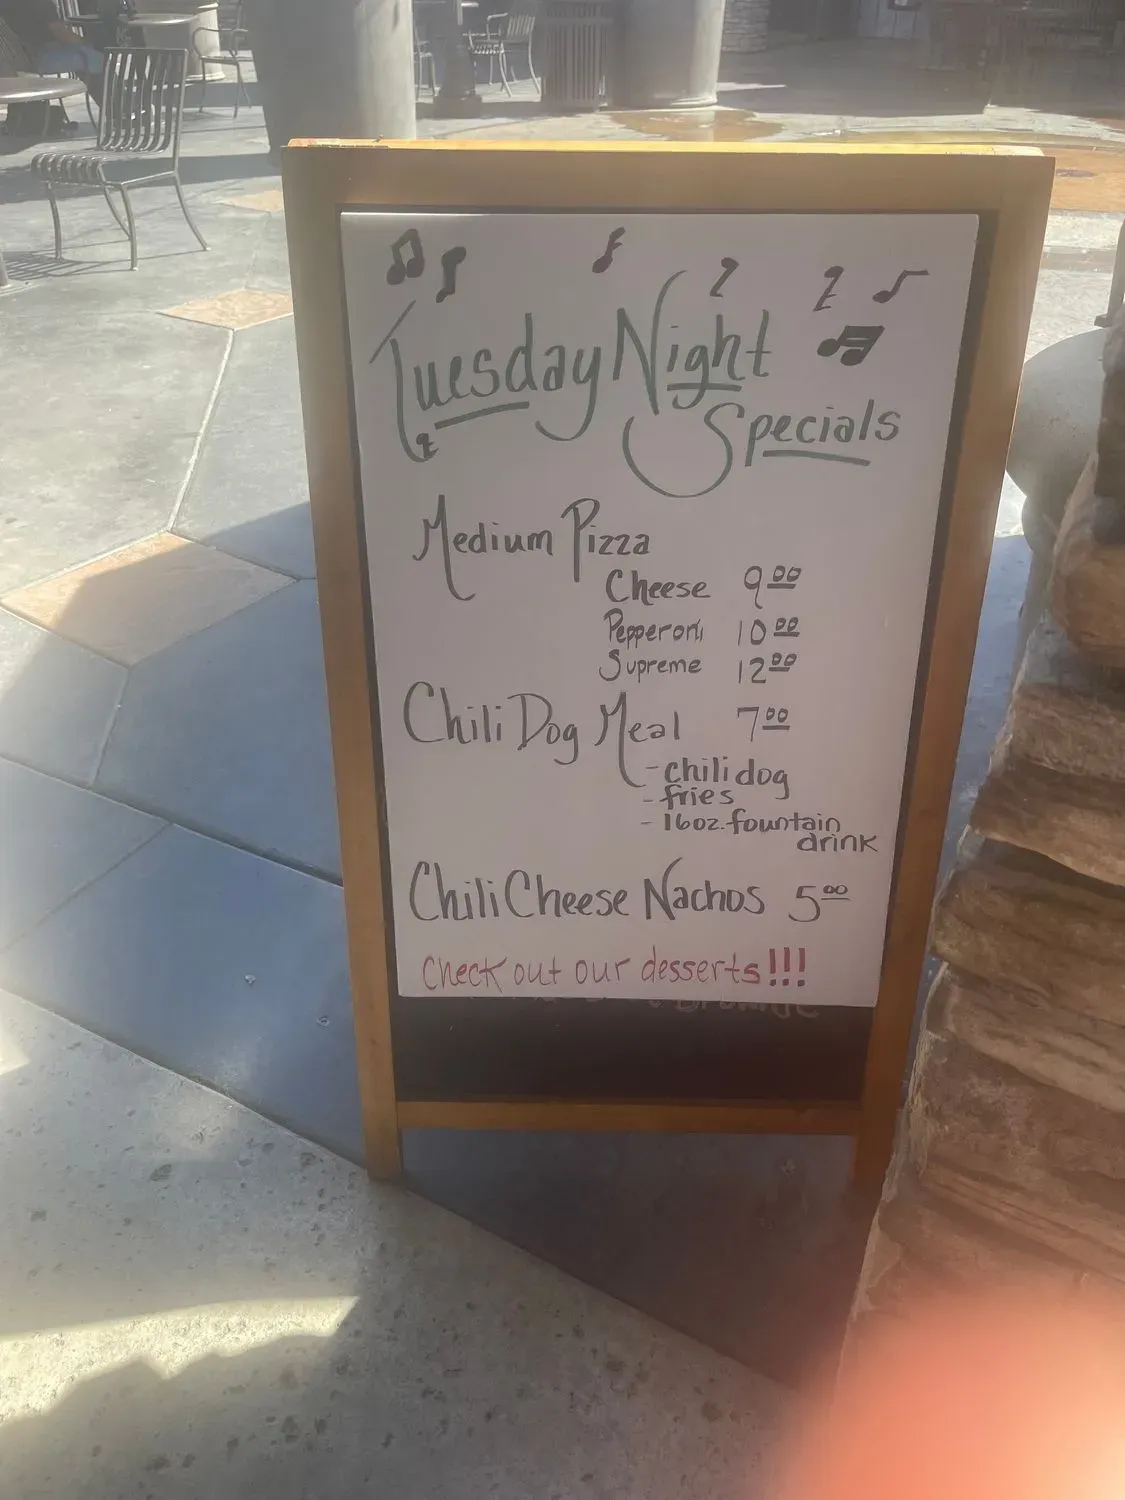 Tuesday Night
Specials
Medium Pizza
Cheese 9.00
Pepperoni 10.00
Supreme 12.00
Chili Dog Meal 7.00
- chili dog
- fries
- 16oz. fountain
drink
Chili Cheese Nachos 5.00
Check out our desserts!!!